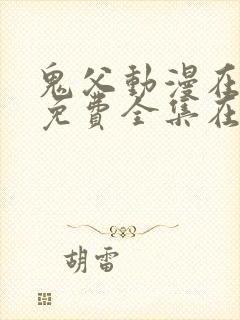 鬼父動漫在
免費全集在
胡雷